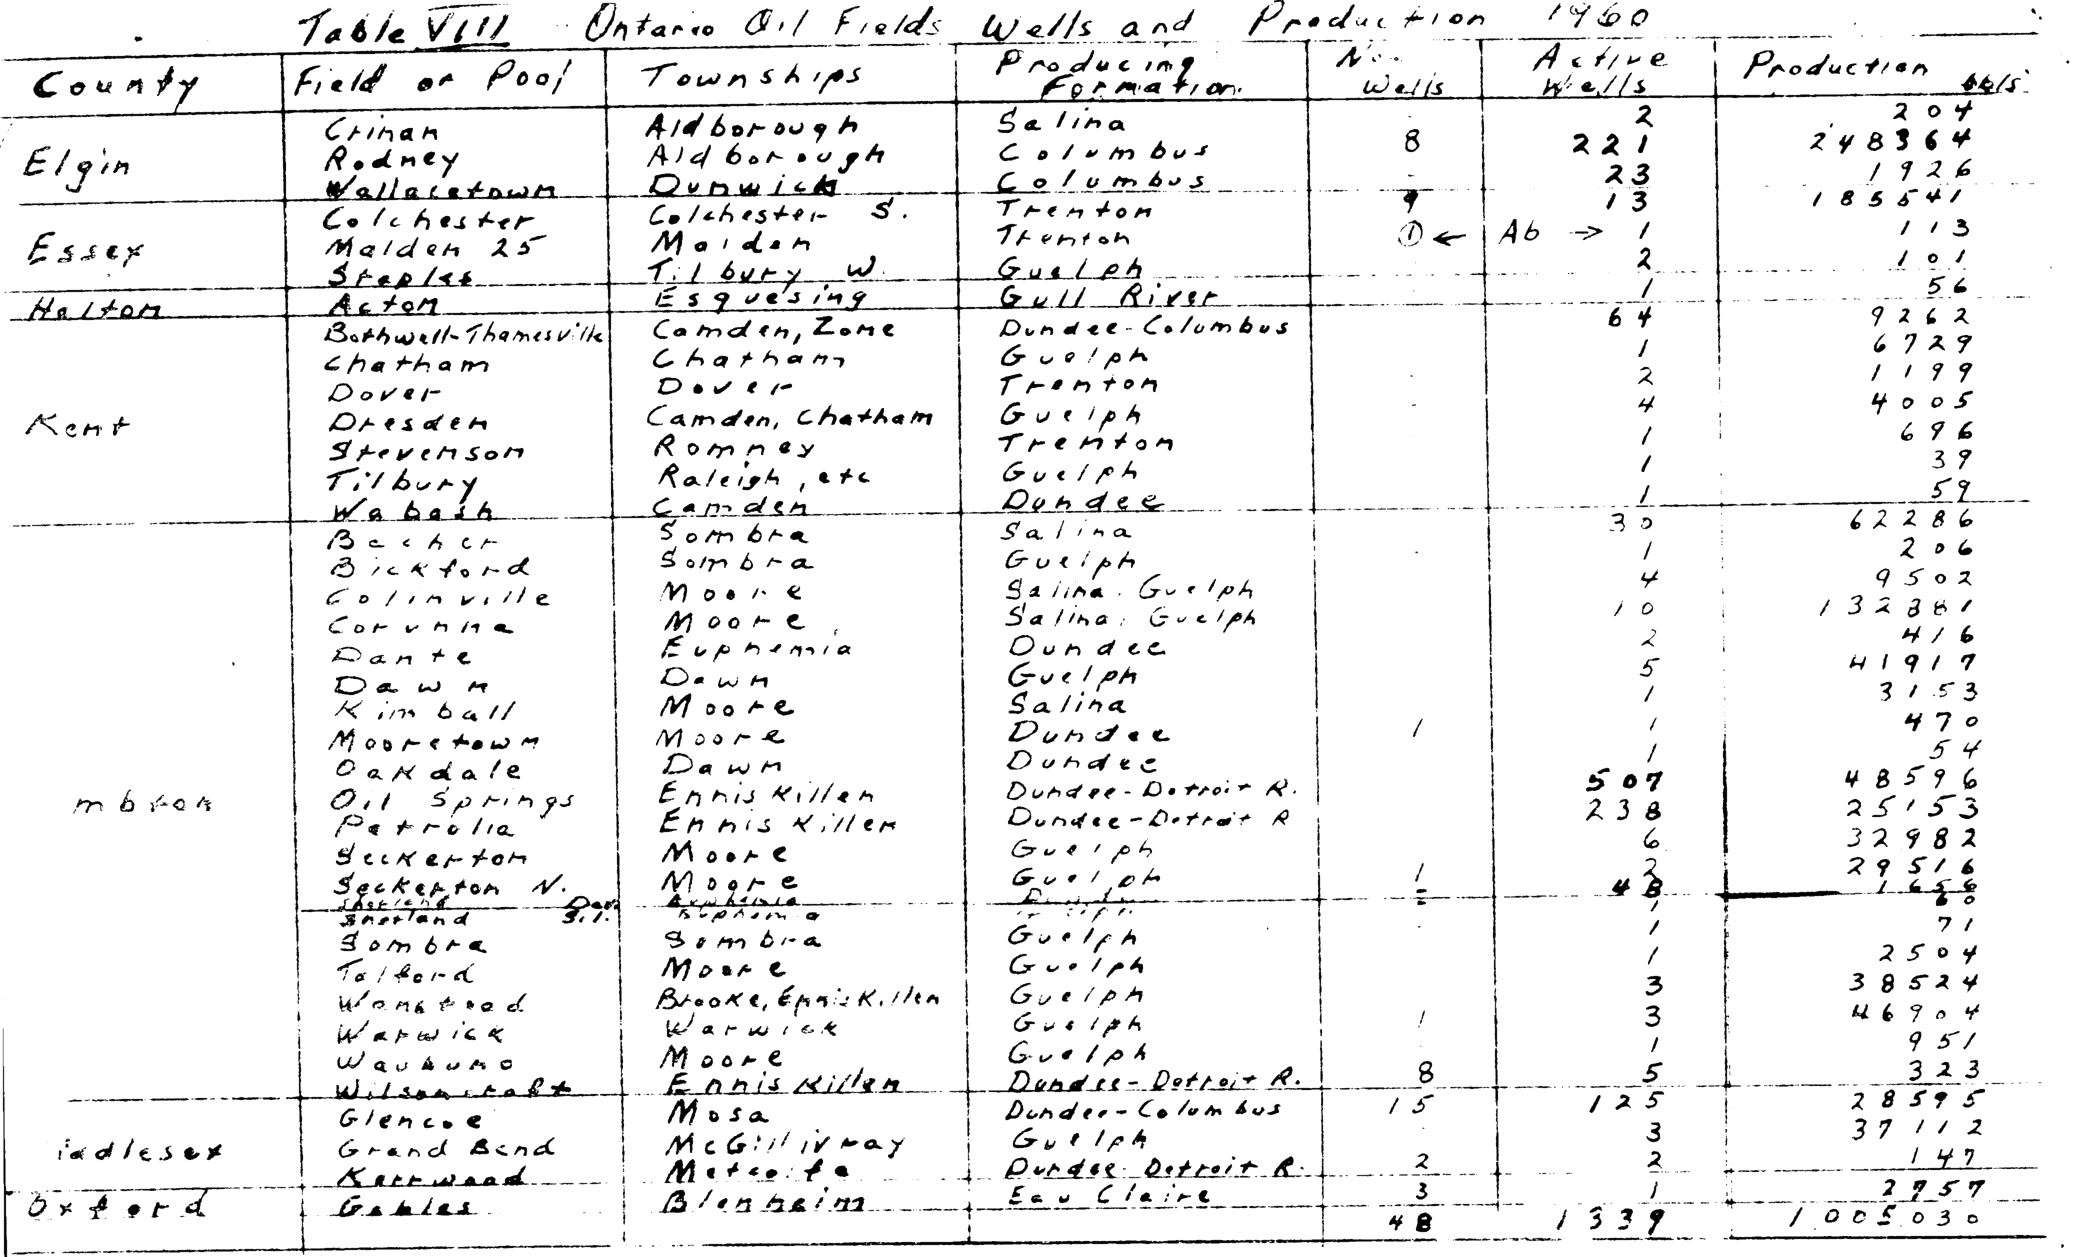 Table VIII Ontario Oil Fields Wells and Production 1960
County Field or Pool Townships Producing Formation No. Wells Active Wells Production bbls
Crinan Aldborough Salina 2 204
Elgin Rodney Aldborough Columbus 8 221 248364
Wallacetown Dunwich Columbus 23 1926
Colchester Colchester S. Trenton 9 13 185541
Essex Malden 25 Malden Trenton ① ← Ab → 1 113
Staples Tilbury W. Guelph 2 101
Halton Acton Esquesing Gull River 1 56
Bothwell-Thamesville Camden, Zone Dundee-Columbus 64 9262
Chatham Chatham Guelph 1 6729
Dover Dover Trenton 2 1199
Kent Dresden Camden, Chatham Guelph 4 4005
Stevenson Romney Trenton 1 696
Tilbury Raleigh, etc Guelph 1 39
Wabash Camden Dundee 1 59
Becher Sombra Salina 30 62286
Bickford Sombra Guelph 1 206
Colinville Moore Salina. Guelph 4 9502
Corunna Moore Salina, Guelph 10
Dante Euphemia Dundee 2 416
Dawn Dawn Guelph 5 41917
Kimball Moore Salina 1 3153
Mooretown Moore Dundee 1 1 470
Oakdale Dawn Dundee 1 54
mbton Oil Springs Enniskillen Dundee-Detroit R. 507 48596
Petrolia Enniskillen Dundee-Detroit R 238 25153
Seckerton Moore Guelph 6 32982
Seckerton N. Moore Guelph 1 2 29516
Shetland Euphemia 48
Shetland Sil. Euphemia 1 60
Sombra Sombra Guelph 1 71
Telford Moore Guelph 1 2504
Wanstead Brooke, Enniskillen Guelph 3 38524
Warwick Warwick Guelph 1 3 46904
Waubuno Moore Guelph 1 951
Wilsoncroft Enniskillen Dundee-Detroit R. 8 5 323
Glencoe Mosa Dundee-Columbus 15 125 28595
iddlesex Grand Bend McGillivray Guelph 3 37112
Kerrwood Metcalfe Dundee-Detroit R. 2 2 147
Oxford Gobles Blenheim Eau Claire 3 1 2757
48 1339 1005030